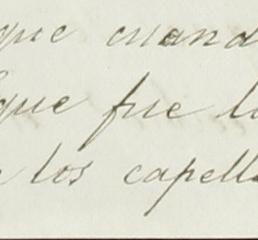 que cuand
que fue l
los capell